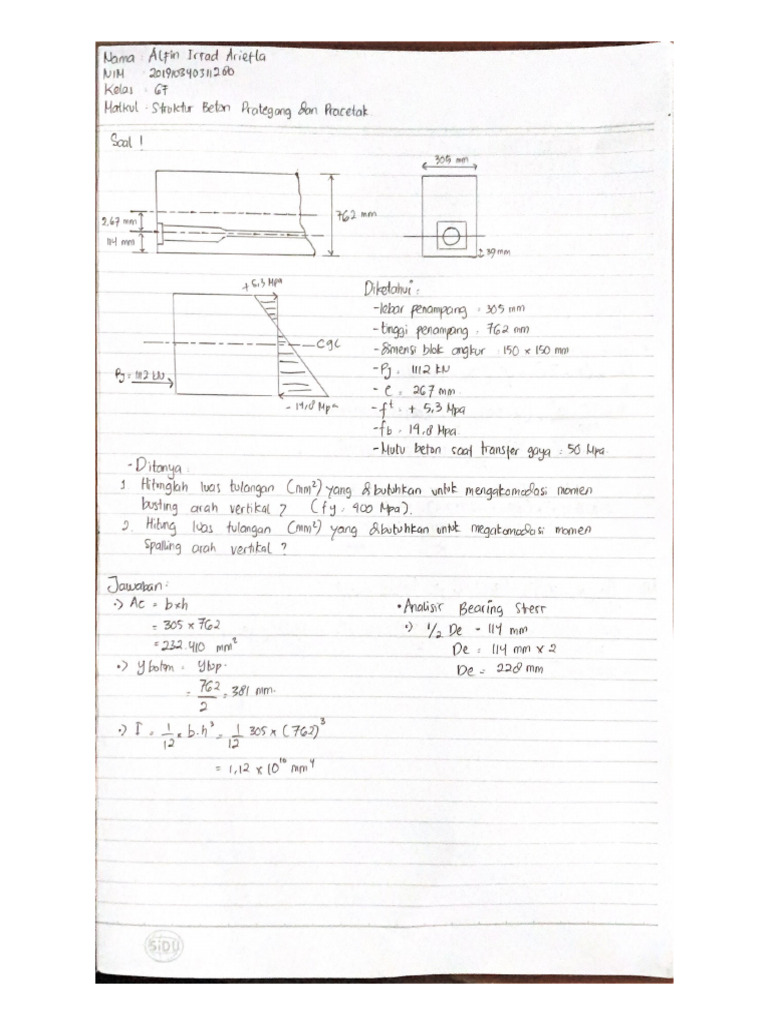 Nama : Alfin Irsad Ariefla
NIM : 201910340311260
Kelas : 6F
Matkul : Struktur Beton Prategang dan Pracetak
Soal 1
305 mm
762 mm
267 mm
114 mm
39 mm
+ 5,3 Mpa
cgc
Pj = 1112 kN
- 14,8 Mpa
Diketahui :
- lebar penampang : 305 mm
- tinggi penampang : 762 mm
- dimensi blok angkur : 150 x 150 mm
- Pj = 1112 kN
- e = 267 mm
- ft : + 5,3 Mpa
- fb : 14,8 Mpa
- Mutu beton saat transfer gaya : 50 Mpa
- Ditanya :
1. Hitunglah luas tulangan (mm²) yang dibutuhkan untuk mengakomodasi momen
busting arah vertikal ? (fy : 400 Mpa).
2. Hitung luas tulangan (mm²) yang dibutuhkan untuk megakomodasi momen
Spalling arah vertikal ?
Jawaban :
•) Ac = b×h
= 305 × 762
= 232.410 mm²
•) y botom = ytop.
= 762/2 = 381 mm.
•) I = 1/12 × b.h³ = 1/12 305 × (762)³
= 1,12 × 10¹⁰ mm⁴
• Analisis Bearing Sterr
•) 1/2 De = 114 mm
De = 114 mm × 2
De = 228 mm
SiDU